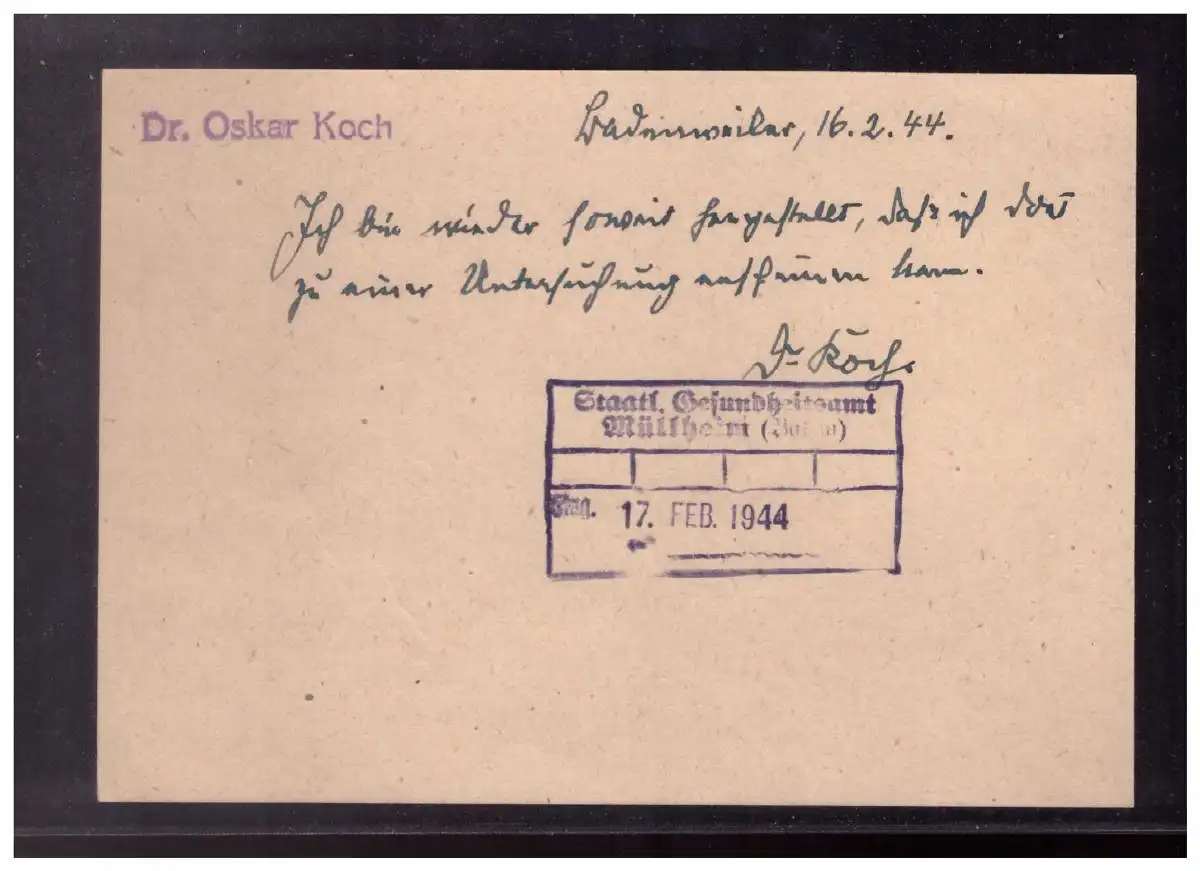 Dr. Oskar Koch
Badenweiler, 16.2.44.
Ich bin wieder soweit hergestellt, daß ich dort
zu einer Untersuchung erscheinen kann.
Dr Koch.
Staatl. Gesundheitsamt
Müllheim (Baden)
Eing. 17. FEB. 1944